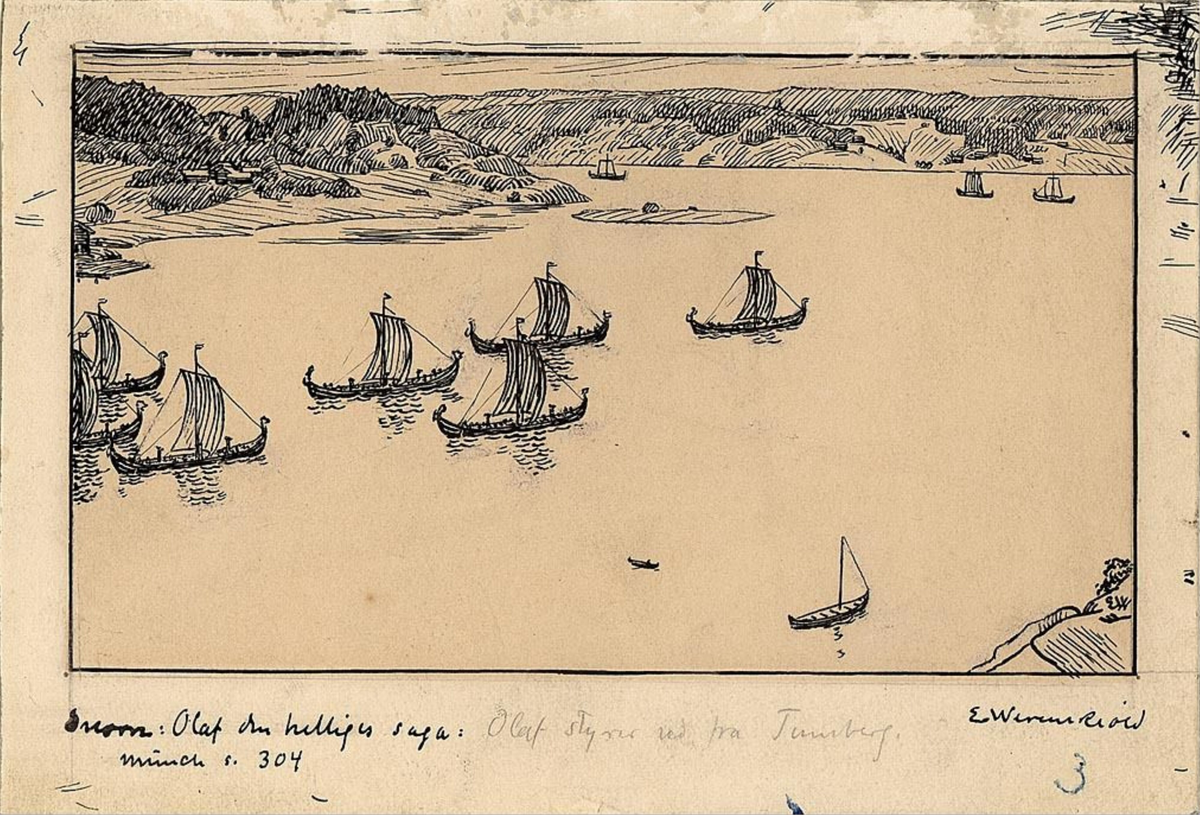 EW
Snorre: Olaf den helliges saga: Olaf styrer ud fra Tunsberg.
E. Werenskiold
Munch s. 304
3